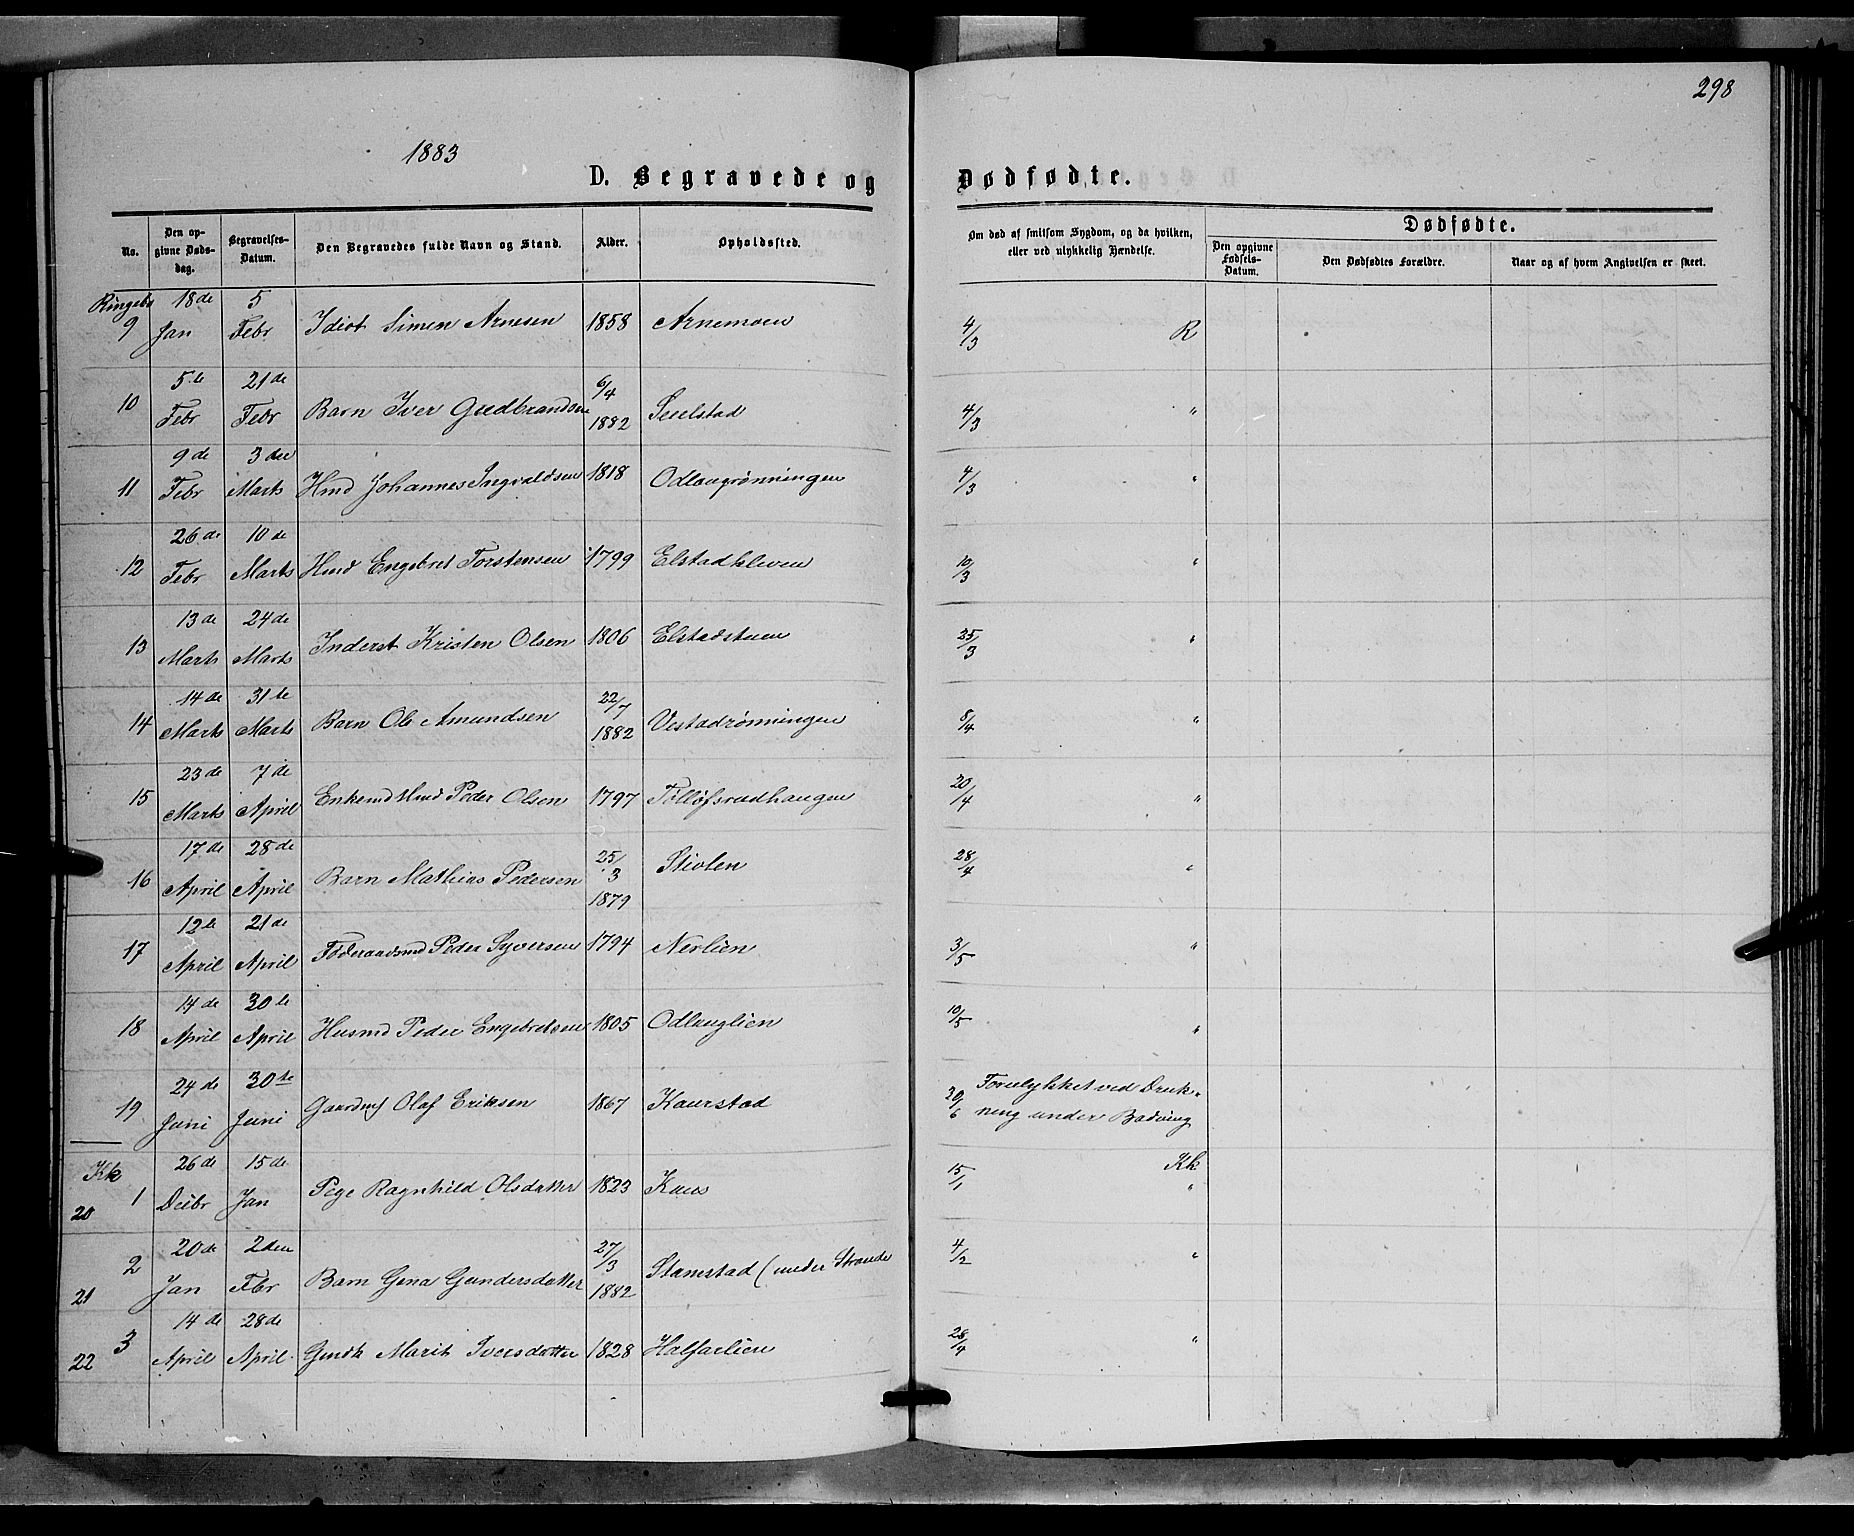 298
1883
D. Begravede og Dødfødte.
No. Den opgivne Dødsdag. Begravelses-Datum. Den Begravedes fulde Navn og Stand. Alder. Opholdssted. Om død af smitsom Sygdom, og da hvilken, eller ved ulykkelig Hændelse. Dødfødte. Den opgivne Fødsels-Datum. Den Dødfødtes Forældre. Naar og af hvem Angivelsen er skeet.
Ringebu 9 18de Jan 5 Febr Idiot Simen Arnesen 1858 Arnemoen 4/3 R
10 5te Febr 21de Febr Barn Iver Gudbrandsen 6/4 1882 Sculstad 4/3 "
11 9de Febr 3den Marts Hmd Johannes Ingvaldsen 1818 Odlougrønningen 4/3 "
12 26de Febr 10de Marts Hmd Engebret Torstensen 1799 Elstadkleven 10/3 "
13 13de Marts 24de Marts Inderst Kristen Olsen 1806 Elstadstuen 25/3 "
14 14de Marts 31te Marts Barn Ole Amundsen 22/7 1882 Vestadrønningen 8/4 "
15 23de Marts 7de April Enkemd Hmd Peder Olsen 1797 Tolløfsrudhaugen 20/4 "
16 17de April 28de April Barn Mathias Pedersen 25/3 1879 Stiolen 28/4 "
17 12te April 21de April Føderaadsmd Peder Syversen 1794 Nerlien 3/5 "
18 14de April 30te April Husmd Peder Engebretsen 1805 Odlauglien 10/5 "
19 24de Juni 30te Juni Gaardmf Olaf Eriksen 1867 Kaurstad 30/6 Forulykket ved Drukning under Badning
Kk 20 1 26de Debr 15de Jan Pige Ragnhild Olsdatter 1823 Kaus 15/1 Kk "
21 2 20de Jan 2den Fbr Barn Gina Gundersdatter 27/3 1882 Stanestad (under Strande 4/2 "
22 3 14de April 28de April Gmdk Marit Iversdatter 1828 Halfarlien 28/4 "